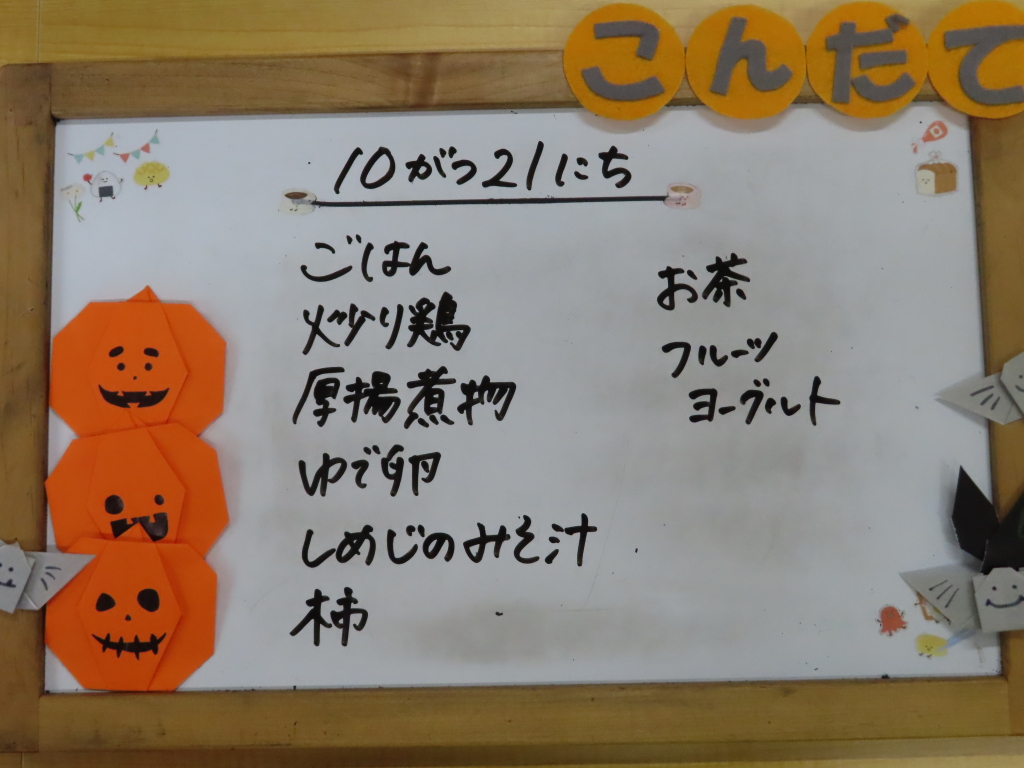 こんだて
10がつ21にち
ごはん
炒り鶏
厚揚煮物
ゆで卵
しめじのみそ汁
柿
お茶
フルーツ
ヨーグルト